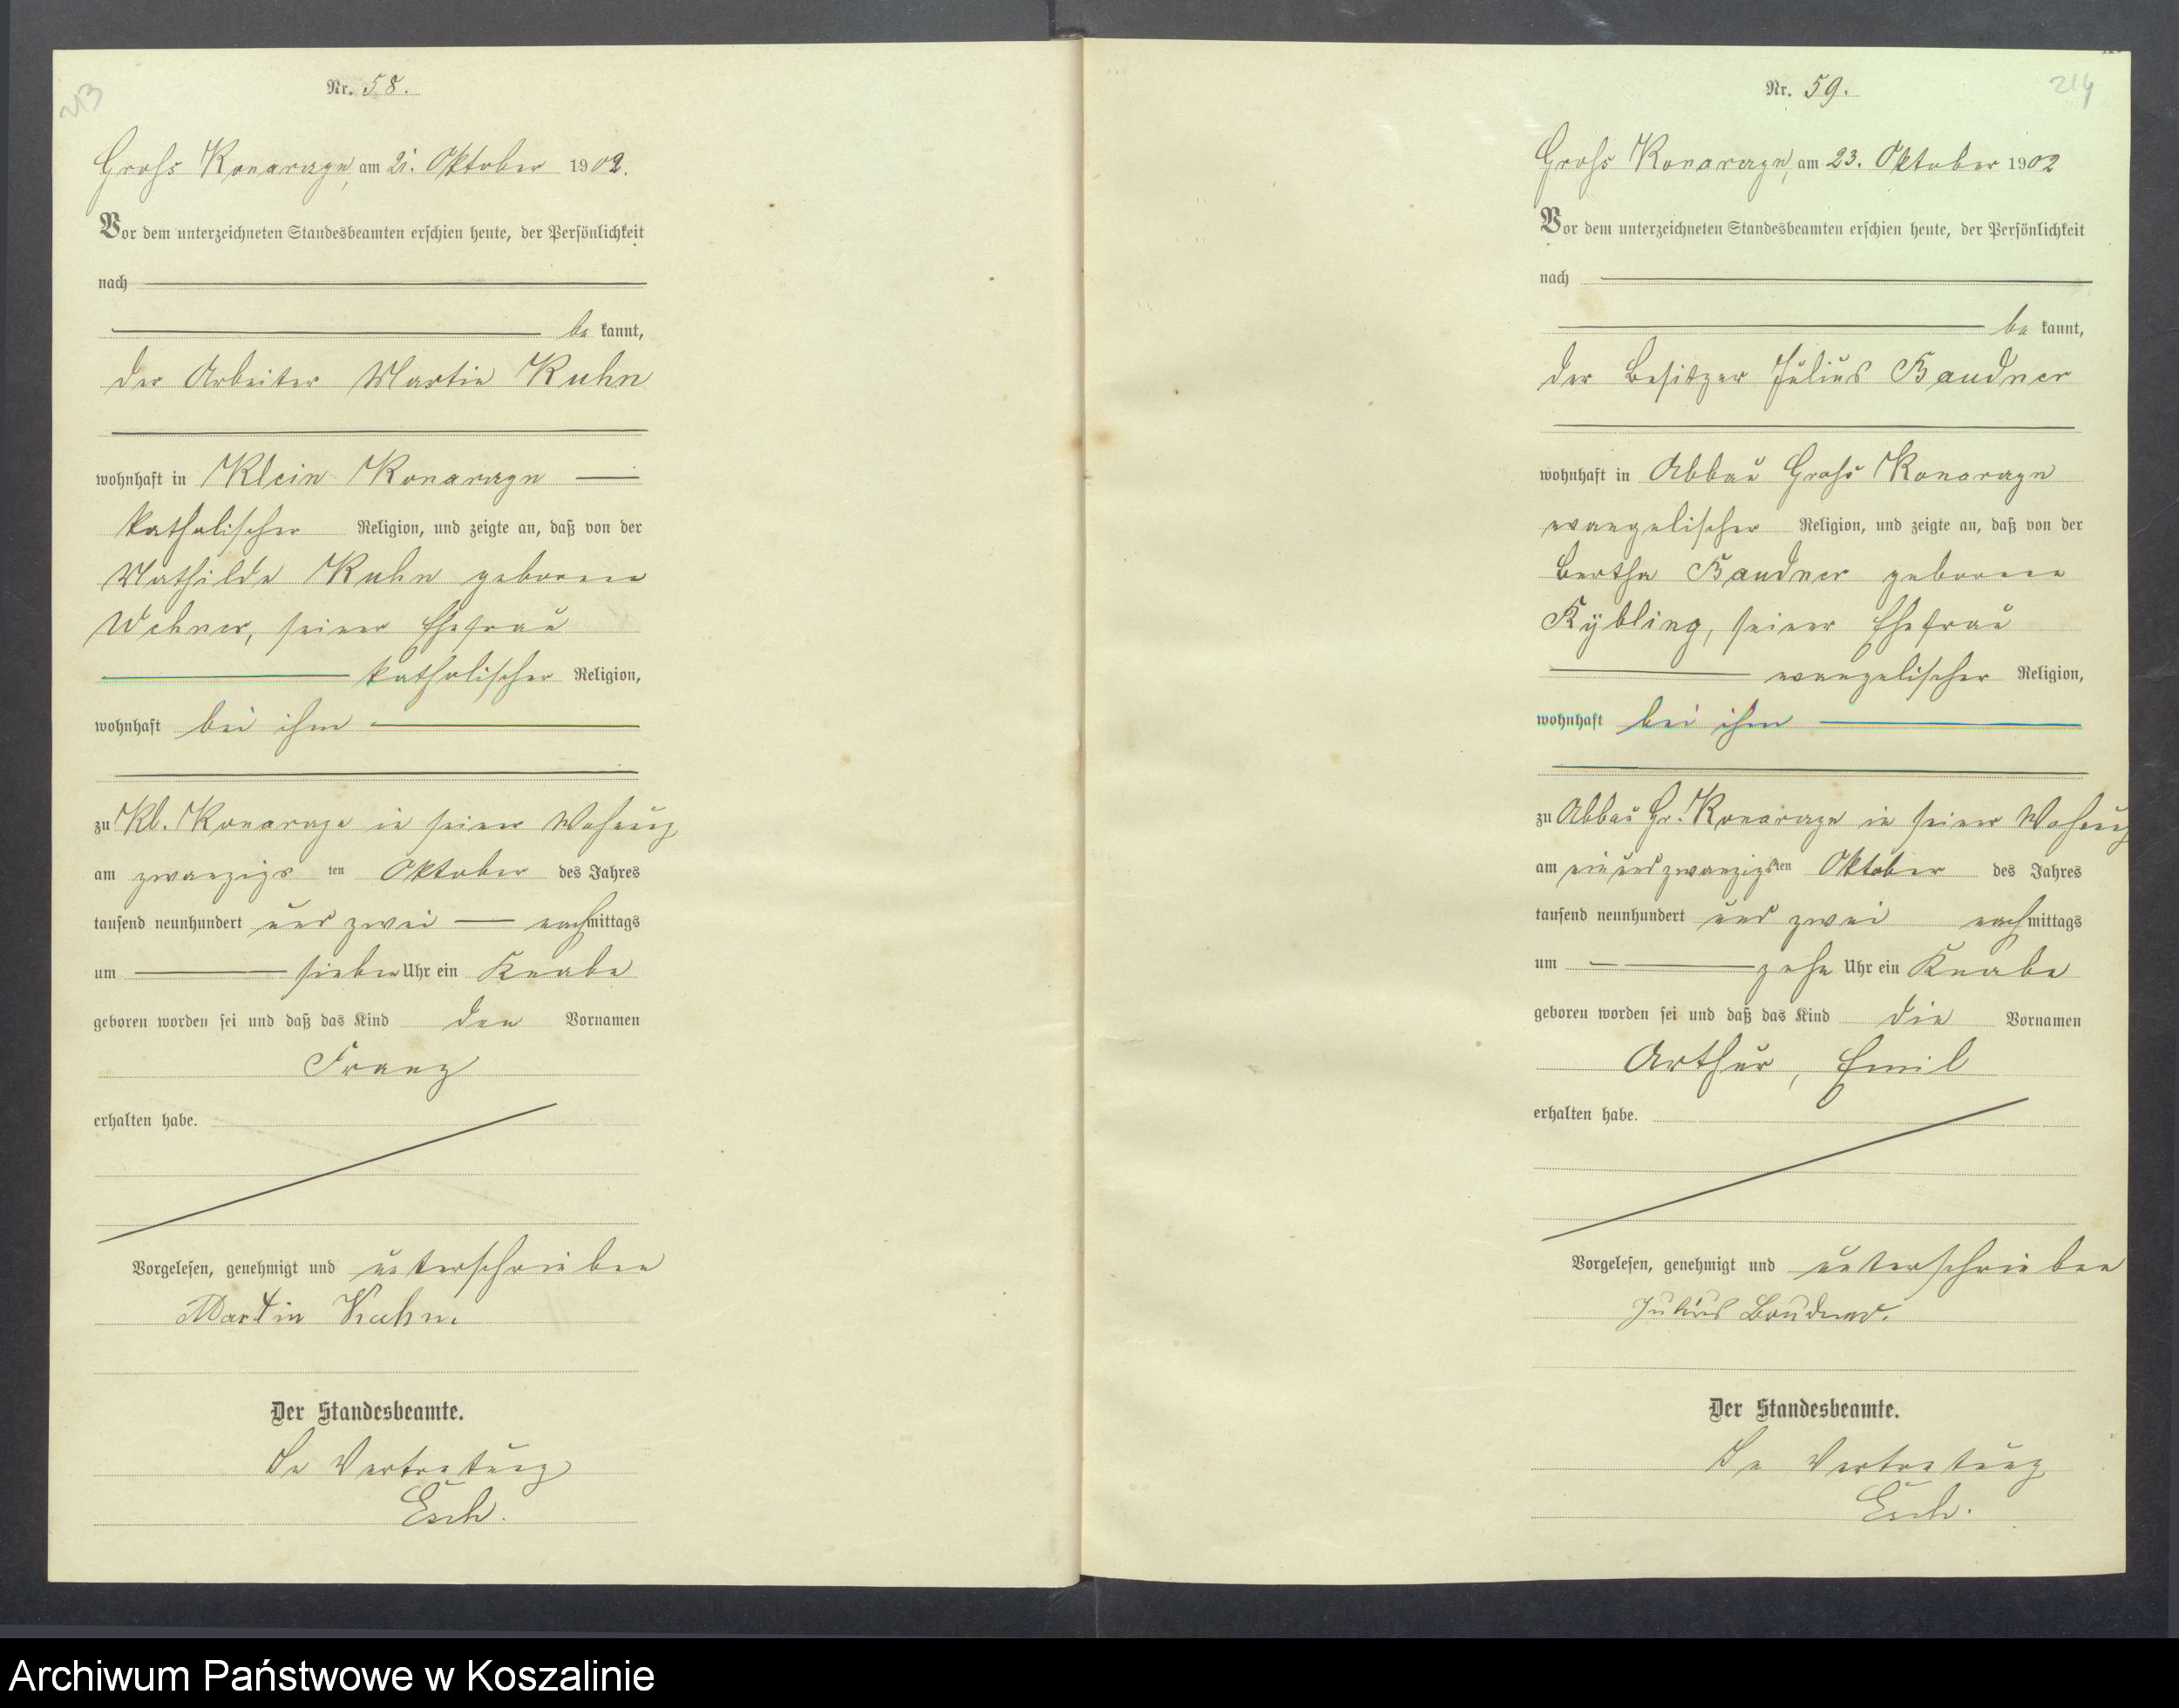 213
Nr. 58.
Gross Konarzyn, am 21. Oktober 1902.
Vor dem unterzeichneten Standesbeamten erschien heute, der Persönlichkeit
nach
be kannt,
der Arbeiter Martin Kuhn
wohnhaft in Klein Konarzyn
katholischer Religion, und zeigte an, daß von der
Mathilde Kuhn geborene
Wehner, seiner Ehefrau
katholischer Religion,
wohnhaft bei ihm
zu Kl. Konarzyn in seiner Wohnung
am zwanzigs ten Oktober des Jahres
tausend neunhundert und zwei nachmittags
um sieben Uhr ein Knabe
geboren worden sei und daß das Kind den Vornamen
Franz
erhalten habe.
Vorgelesen, genehmigt und unterschrieben
Martin Kuhn.
Der Standesbeamte.
In Vertretung
Esch.
214
Nr. 59.
Gross Konarzyn, am 23. Oktober 1902
Vor dem unterzeichneten Standesbeamten erschien heute, der Persönlichkeit
nach
be kannt,
der Besitzer Julius Baudner
wohnhaft in Abbau Gross Konarzyn
evangelischer Religion, und zeigte an, daß von der
Bertha Baudner geborene
Rybling, seiner Ehefrau
evangelischer Religion,
wohnhaft bei ihm
zu Abbau Gr. Konarzyn in seiner Wohnung
am einundzwanzigsten Oktober des Jahres
tausend neunhundert und zwei nachmittags
um zehn Uhr ein Knabe
geboren worden sei und daß das Kind die Vornamen
Arthur, Emil
erhalten habe.
Vorgelesen, genehmigt und unterschrieben
Julius Baudner.
Der Standesbeamte.
In Vertretung
Esch.
Archiwum Państwowe w Koszalinie